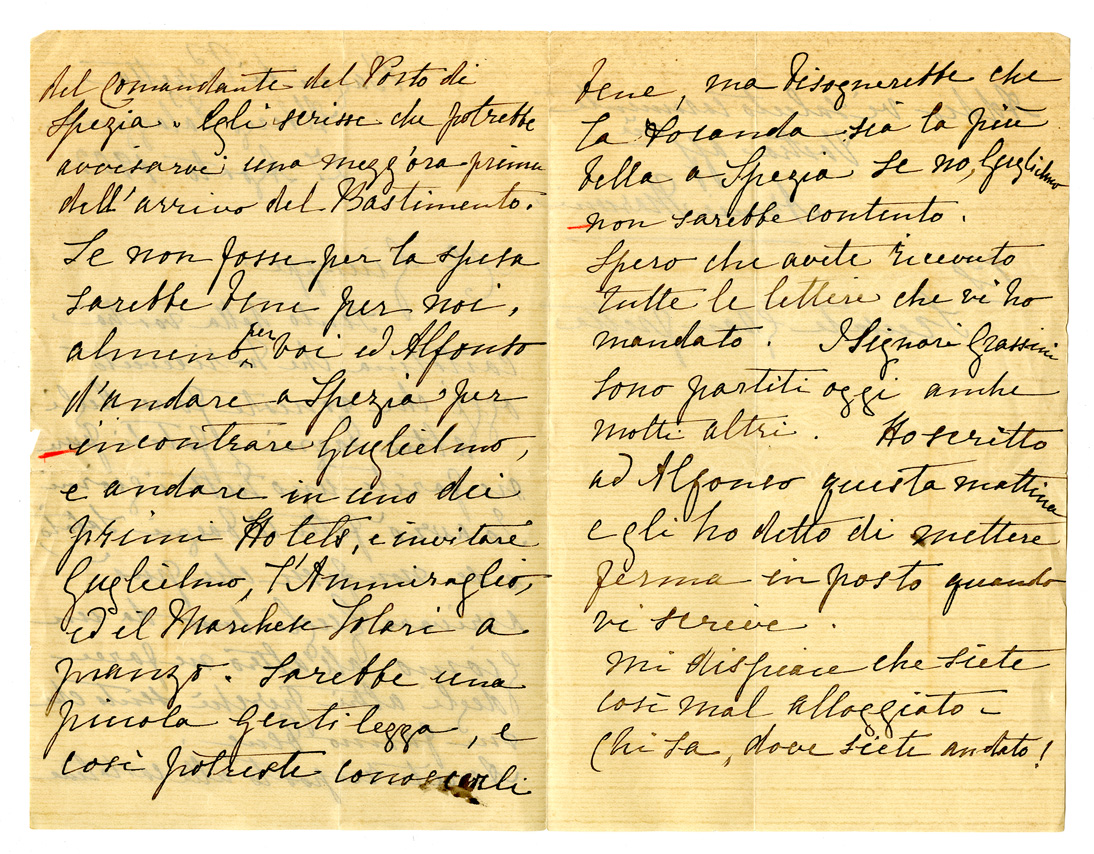 del comandante del Posto di
Spezia. Egli scrisse che potrebbe
avvisarvi una mezz'ora prima
dell'arrivo del Bastimento.
Se non fosse per la spesa
sarebbe bene per noi,
almeno per voi ed Alfonso
d'andare a Spezia per
incontrare Guglielmo,
e andare in uno dei
primi Hotels, e invitare
Guglielmo, l'Ammiraglio,
ed il Marchese Solari a
pranzo. Sarebbe una
piccola gentilezza, e
così potreste conoscerli
bene, ma bisognerebbe che
la Locanda sia la più
bella a Spezia se no, Guglielmo
non sarebbe contento.
Spero che avete ricevuto
tutte le lettere che vi ho
mandato. I Signori Grassini
sono partiti oggi anche
molti altri. Ho scritto
ad Alfonso questa mattina
e gli ho detto di mettere
ferma in posta quando
vi scrive.
Mi dispiace che siete
così mal alloggiato -
Chi sa, dove siete andato!